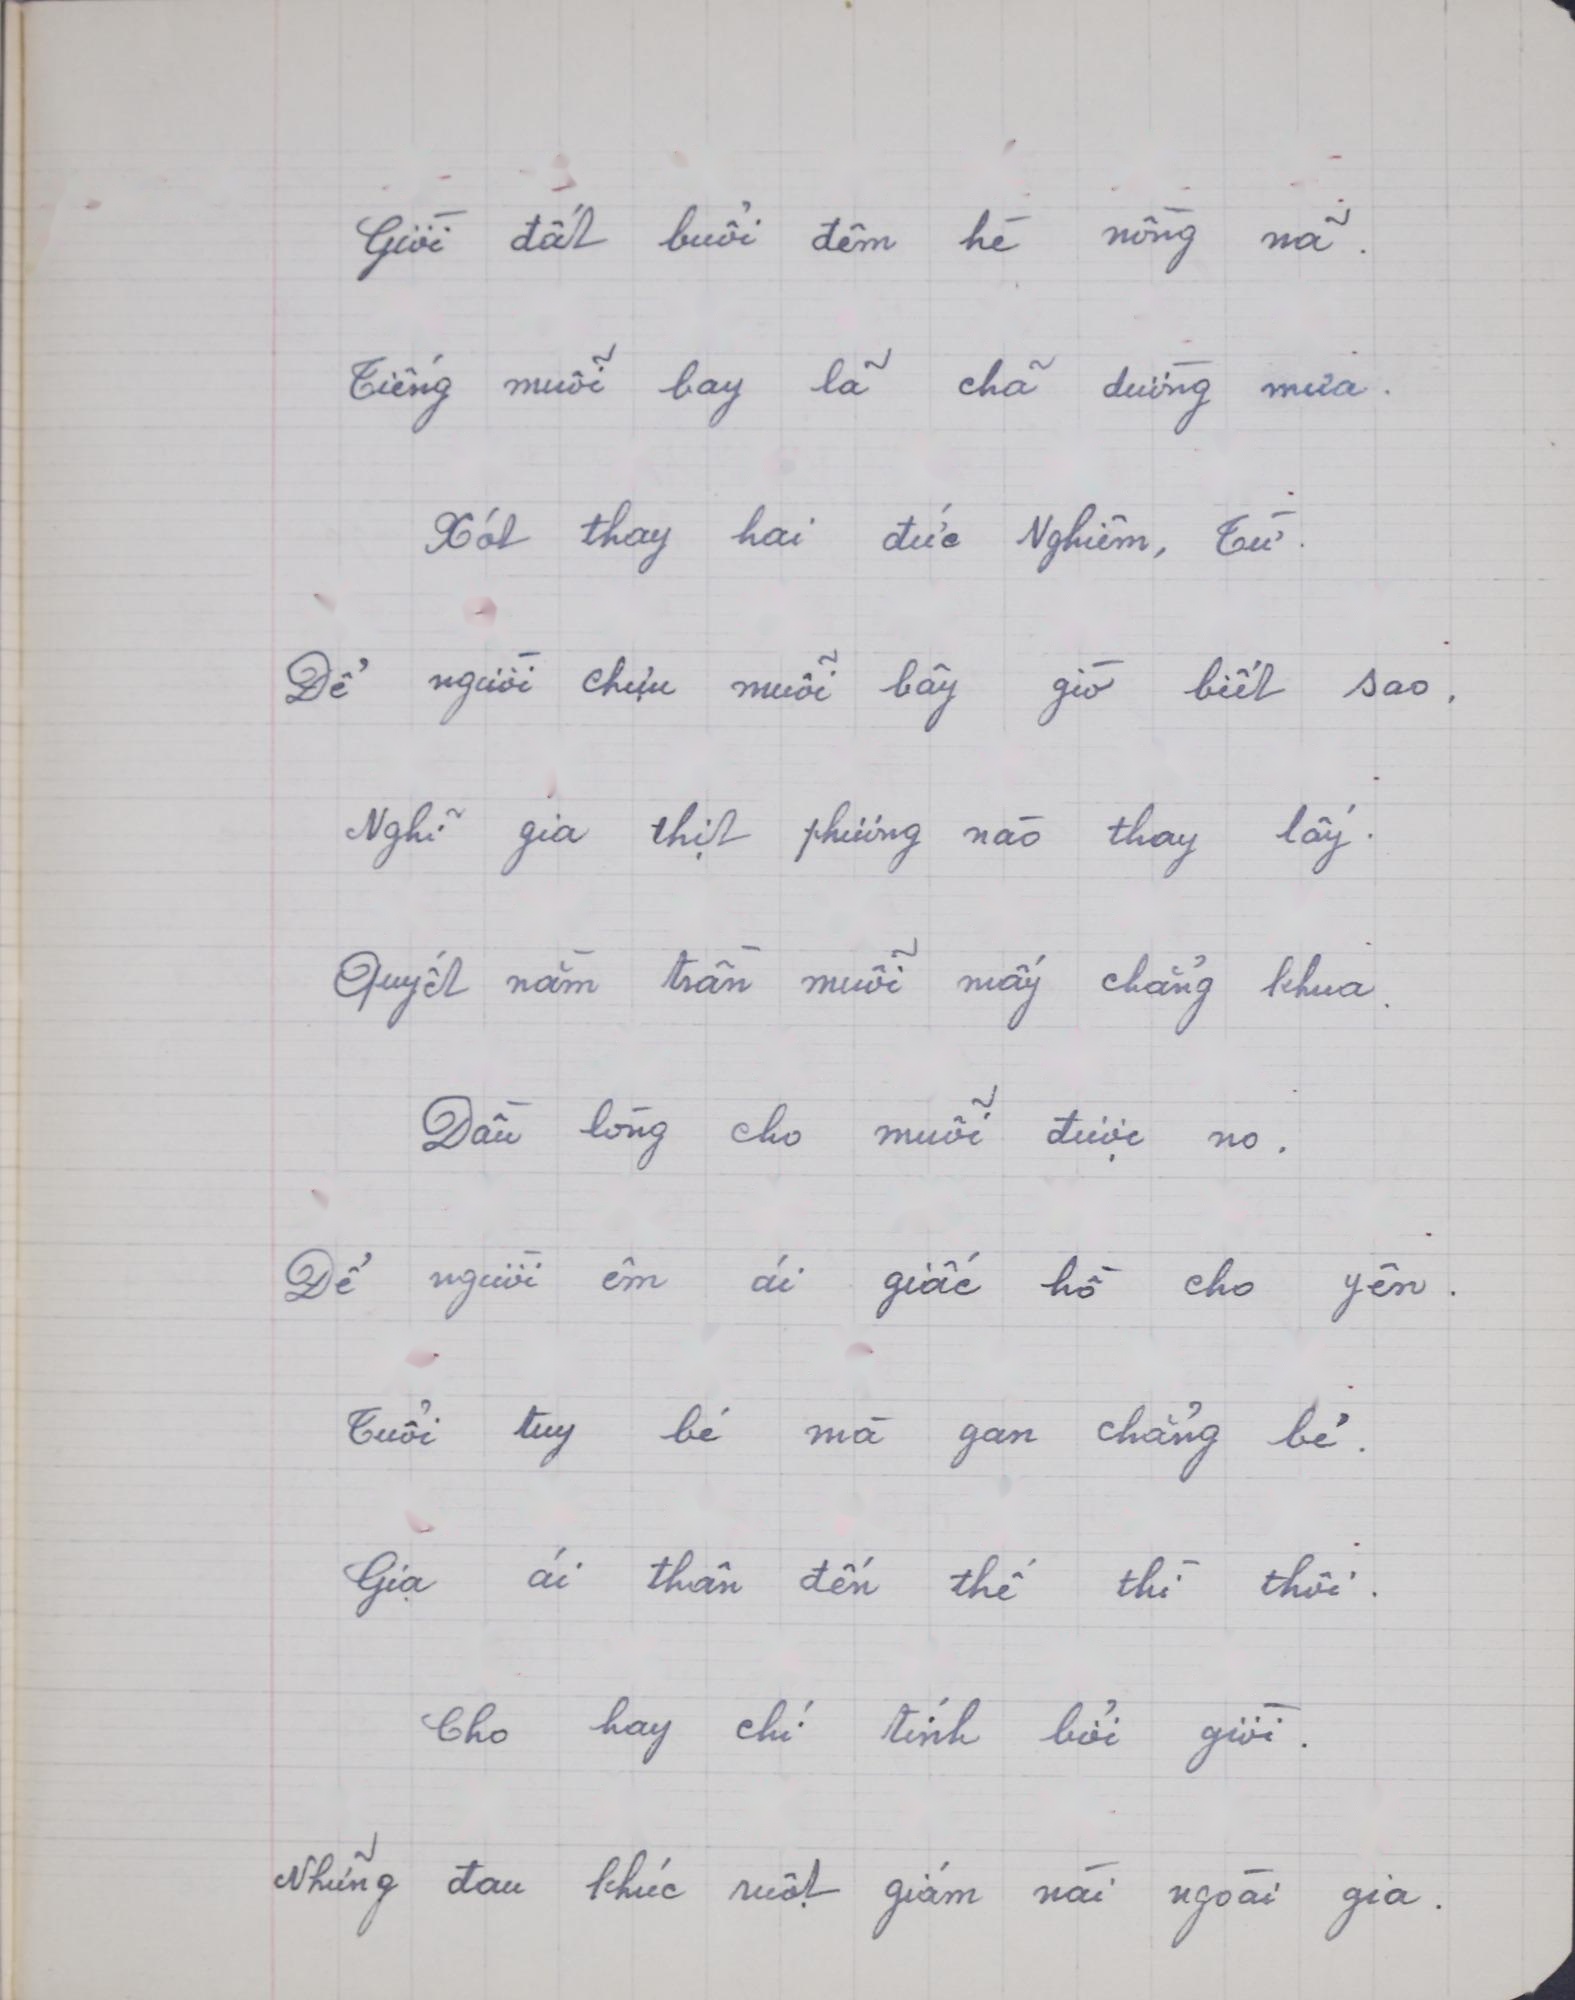 Giời đất buổi đêm hè nồng nã.
Tiếng muỗi bay lã chã dường mưa.
Xót thay hai đức Nghiêm, Từ.
Để người chịu muỗi bây giờ biết sao.
Nghĩ gia thịt phương nào thay lấy.
Quyết nằm trần muỗi mấy chẳng khua.
Dầu lòng cho muỗi được no.
Để người êm ái giấc hồ cho yên.
Tuổi tuy bé mà gan chẳng bé.
Giạ ái thân đến thế thì thôi.
Cho hay chí tính bởi giời.
Những đau khúc ruột giám nài ngoài gia.